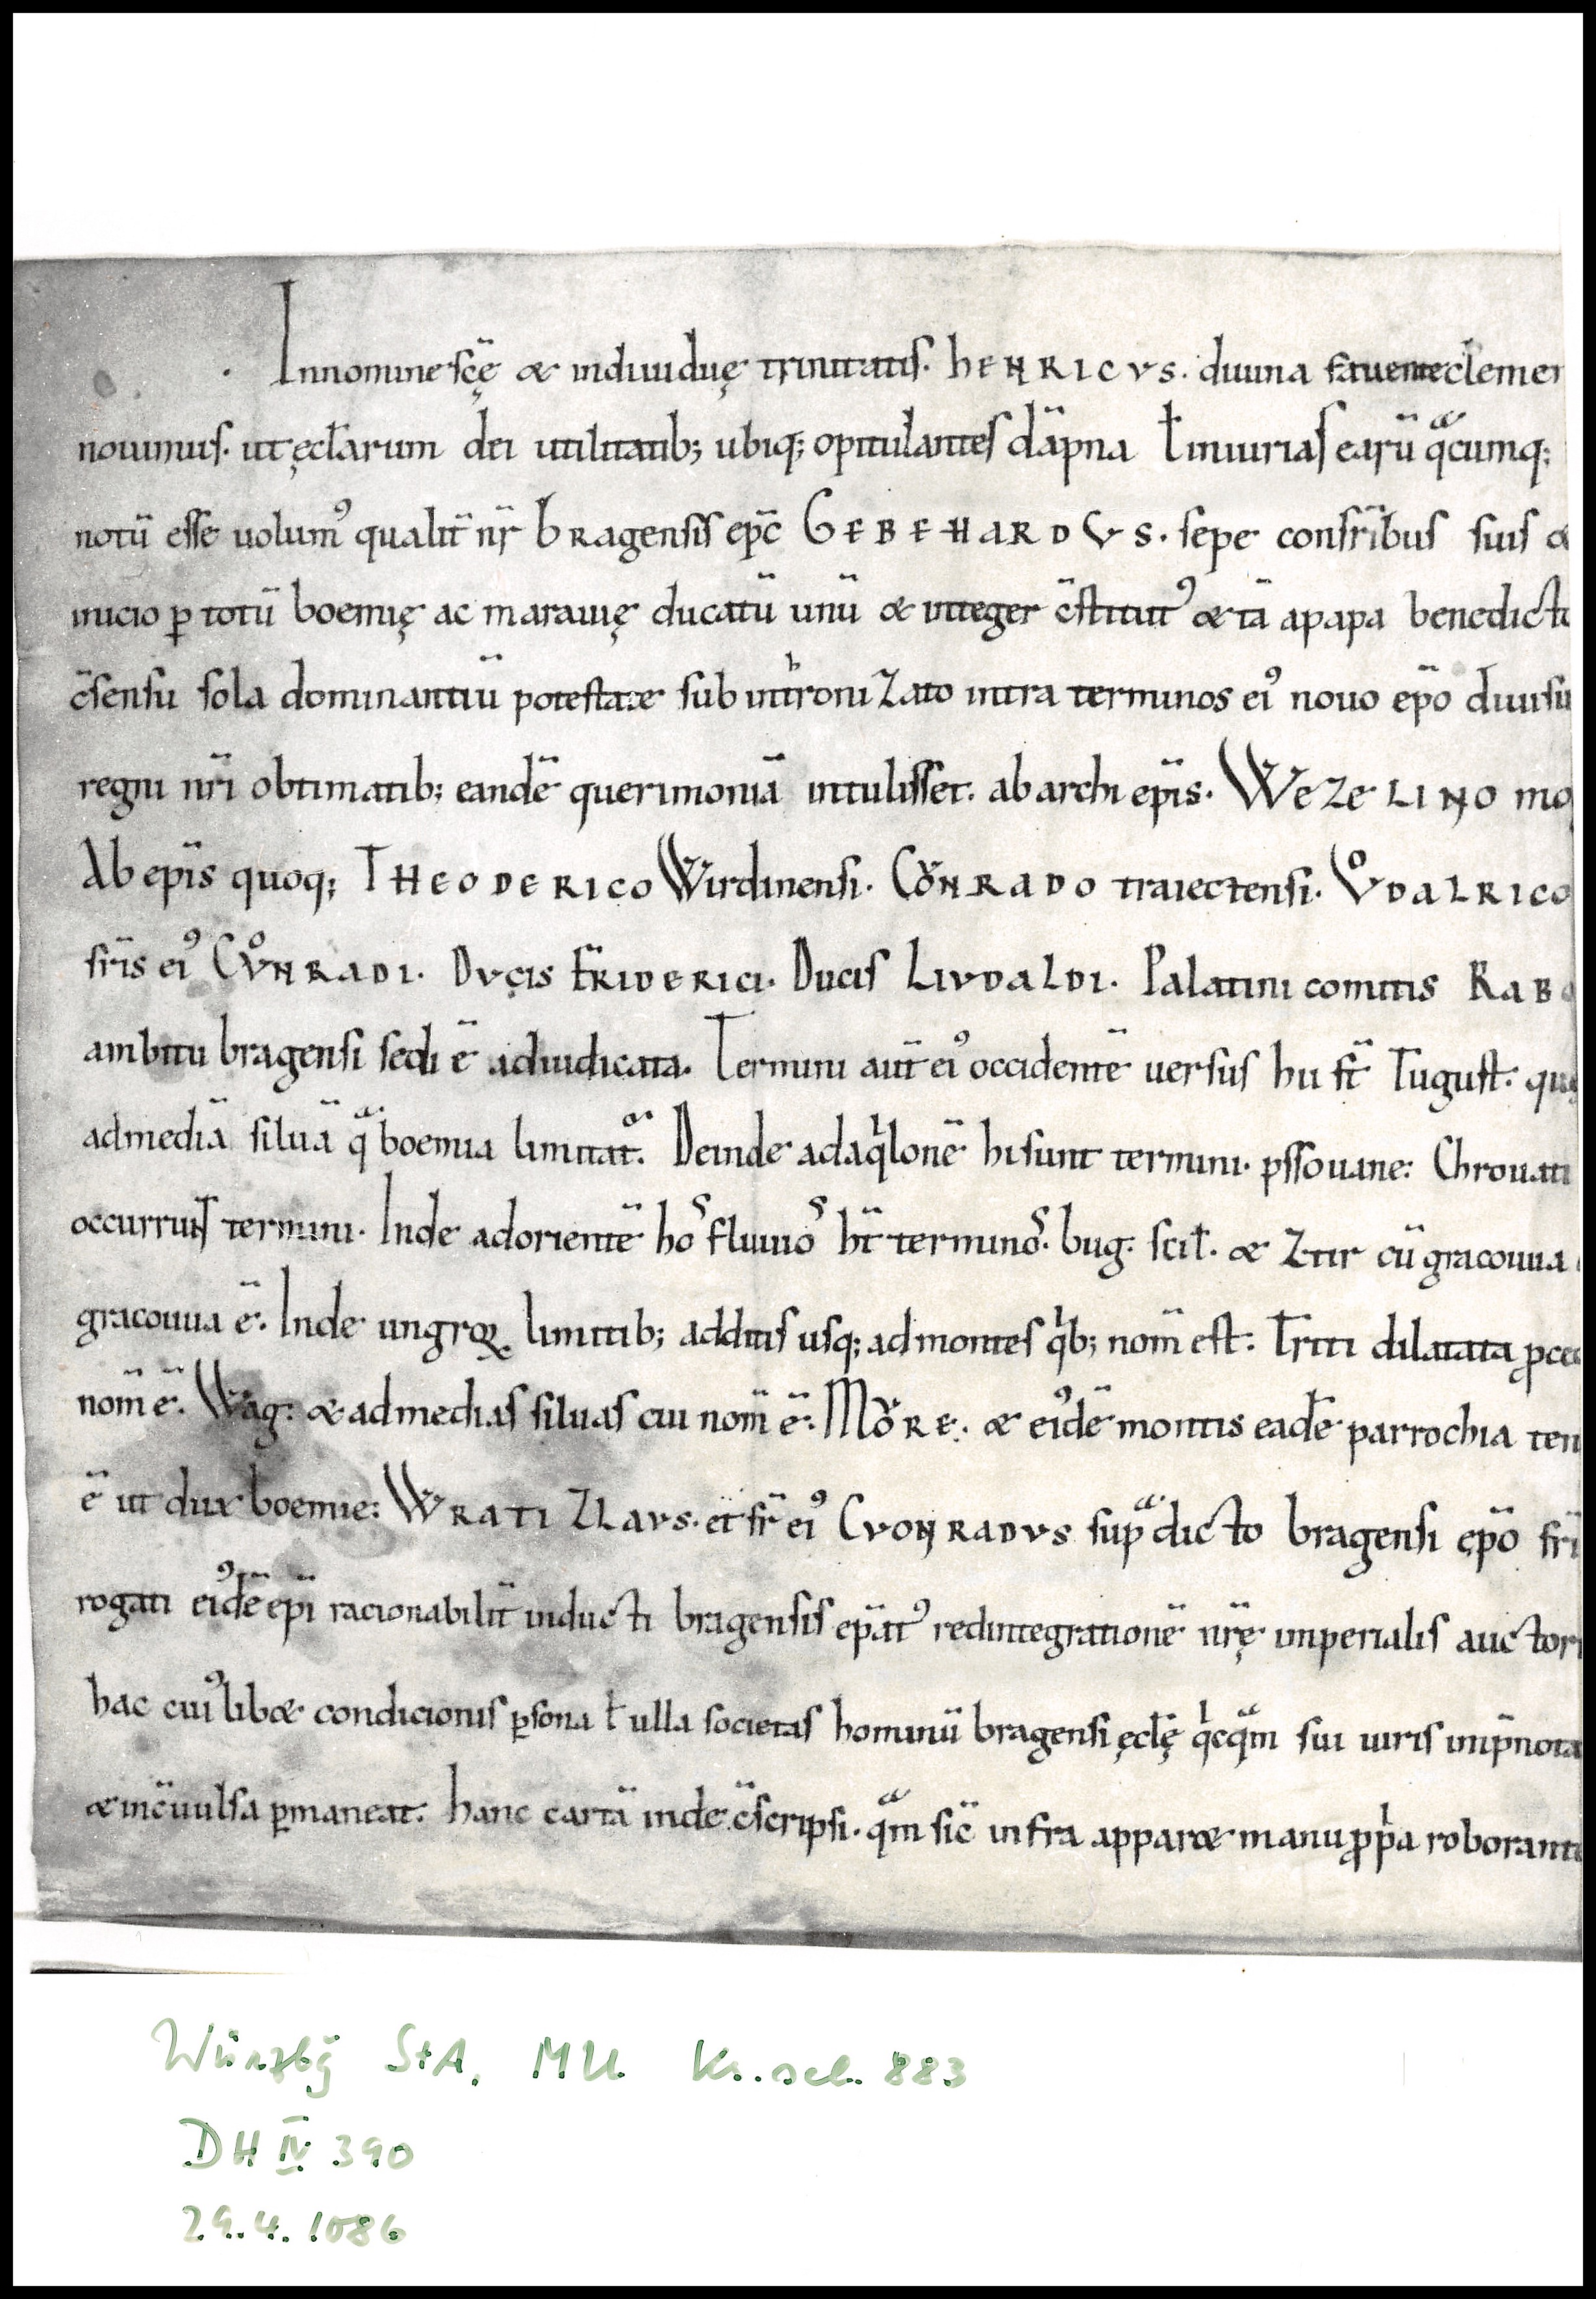 Innomine sc̄ę & indiuiduę trinitatis. hENRICVS. diuina fauente clemen
nouimus. ut ęcƚarum dei utilitatib; ubiq; opitulantes dāpna ƚ iniurias earū qͣcumq;
notū esse uolumꝰ qualit̄ nr̄ bragensis ep̄c GEBEHARDVS. sepe confr̄ibus suis &
inicio ꝑ totū boemię ac marauię ducatū unū & integer c̄stitutꝰ & tā apapa benedicto
c̄sensu sola dominantiū potestate sub intͪronizato intra terminos eiꝰ nouo ep̄o diuisū
regni nr̄i obtimatib; eandē querimoniā intulisset. ab archi ep̄is. WEZELINO mo
Ab ep̄is quoq; THEODERICO Wirdinensi. CǒNRADO traiectensi. VͦDALRICO
fr̄is eiꝰ CVͦNRADI. DVCis FRIDERICI. Ducis LIVDALDI. Palatini comitis RABO
ambitu bragensi sedi ē adiudicata. Termini aut̄ eiꝰ occidentē uersus hii st̄ Tugust. quę
admediā siluā qͣ boemia limitatᷣ. Deinde adaqͥlonē hi sunt termini. pssouane: Chrouati
occurrunt termini. Inde adorientē hoˢ fluuioˢ hт̄ terminoˢ. bug. sciƚ. & Ztir cū gracouua
gracouua ē. Inde ungroꝝ limitib; additis usq; admontes qͥb; nom̄ est: Tr̄iti dilatata ꝓced
nom̄ ē. Wag: & admedias siluas cui nom̄ ē. MǒRE. & eiꝰdē montis eadē parrochia ten
ē ut dux boemie: WRATIZLAVS. et fr̄ eiꝰ CVONRADVS supͣdicto bragensi ep̄o fr̄i
rogati eiꝰdē ep̄i racionabilit̄ inducti bragensis ep̄atꝰ redintegrationē nr̄ę imperialis auctori
hac cuiꝰlib& condicionis ꝑsona ƚ ulla societas hominū bragensi ęcƚę qͥcqͣm sui iuris inp̄nota
& inc̄uulsa ꝑmaneat. hanc cartā inde c̄scripsi. qͣm sic̄ infra appar& manu ꝓpͥa roborant
Würzbg StA, MU Kr.sel. 883
DH IV 390
29.4.1086